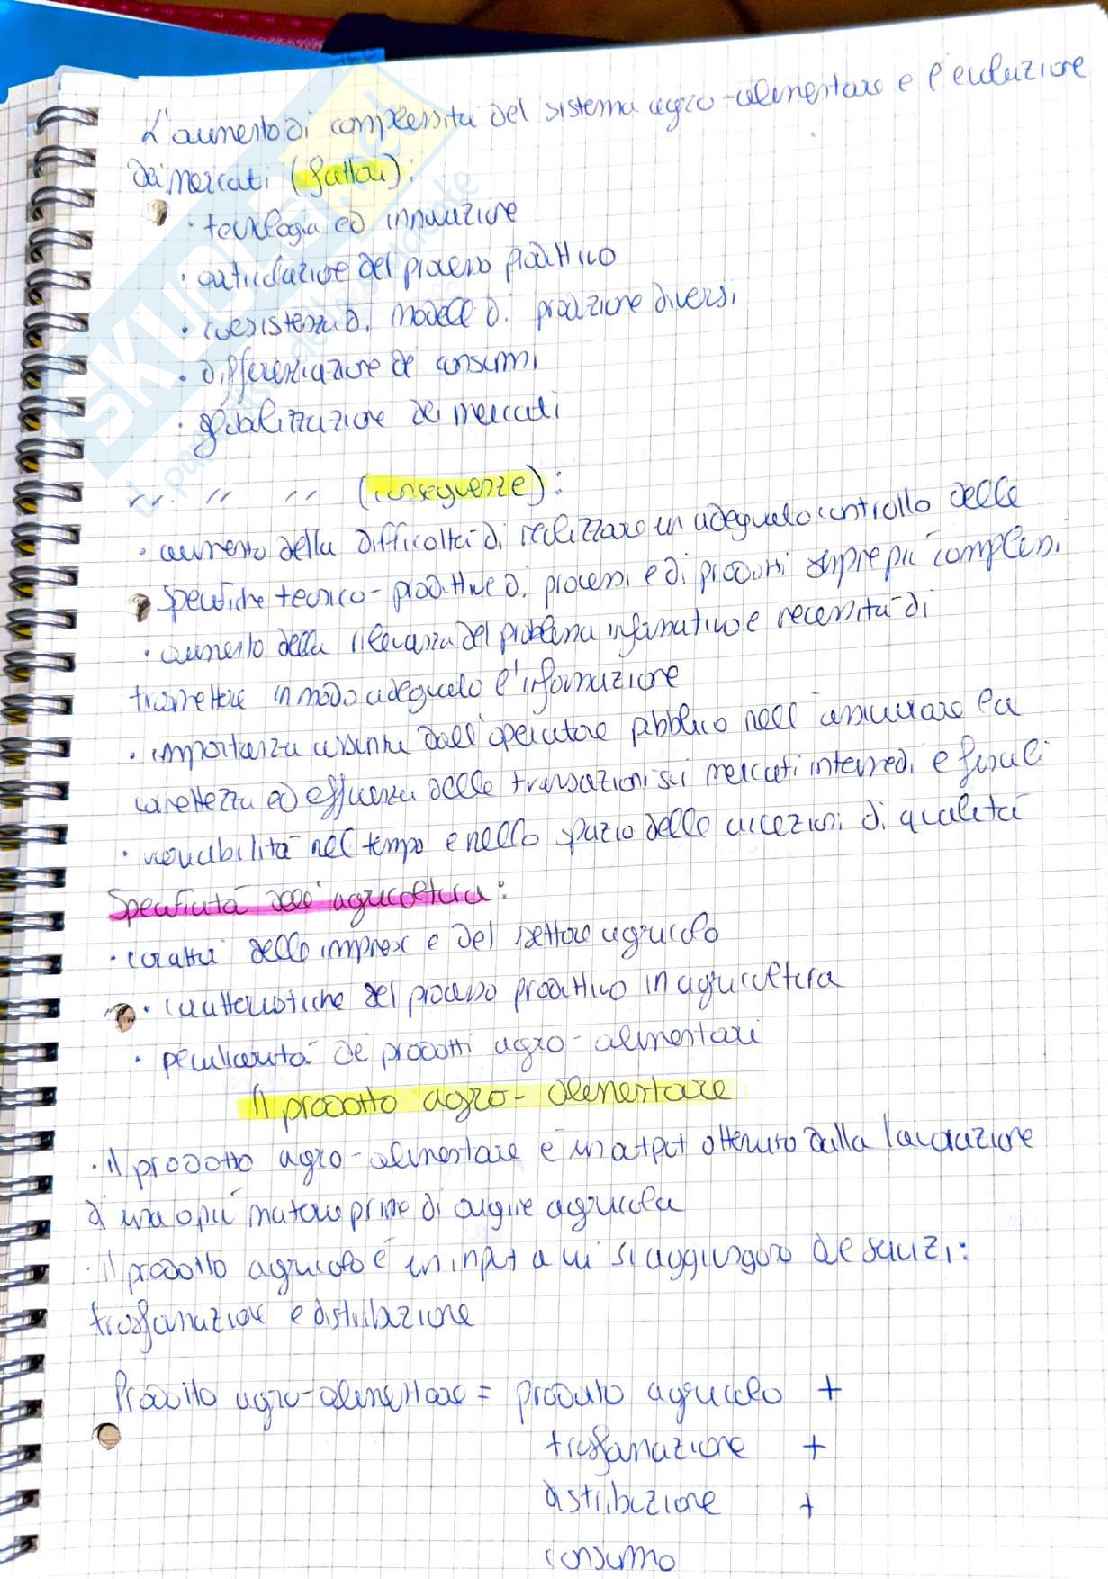 L'aumento di complessità del sistema agro-alimentare e l'evoluzione
dei mercati (fattori):
· tecnologia ed innovazione
· articolazione del processo produttivo
· coesistenza di modelli di produzione diversi
· differenziazione dei consumi
· globalizzazione dei mercati
" " " (conseguenze):
· aumento della difficoltà di realizzare un adeguato controllo delle
specifiche tecnico-produttive di processi e di prodotti sempre più complessi
· aumento della rilevanza del problema informativo e necessità di
trasmettere in modo adeguato l'informazione
· importanza assunta dall'operatore pubblico nell'assicurare la
correttezza ed efficienza delle transazioni sui mercati intermedi e finali
· variabilità nel tempo e nello spazio delle accezioni di qualità
Specificità dell'agricoltura:
· caratteri delle imprese e del settore agricolo
· caratteristiche del processo produttivo in agricoltura
· peculiarità dei prodotti agro-alimentari
Il prodotto agro-alimentare
· il prodotto agro-alimentare è un output ottenuto dalla lavorazione
di una o più materie prime di origine agricola
· il prodotto agricolo è un input a cui si aggiungono dei servizi:
trasformazione e distribuzione
Prodotto agro-alimentare = prodotto agricolo +
trasformazione +
distribuzione +
consumo
SKUOLA.net